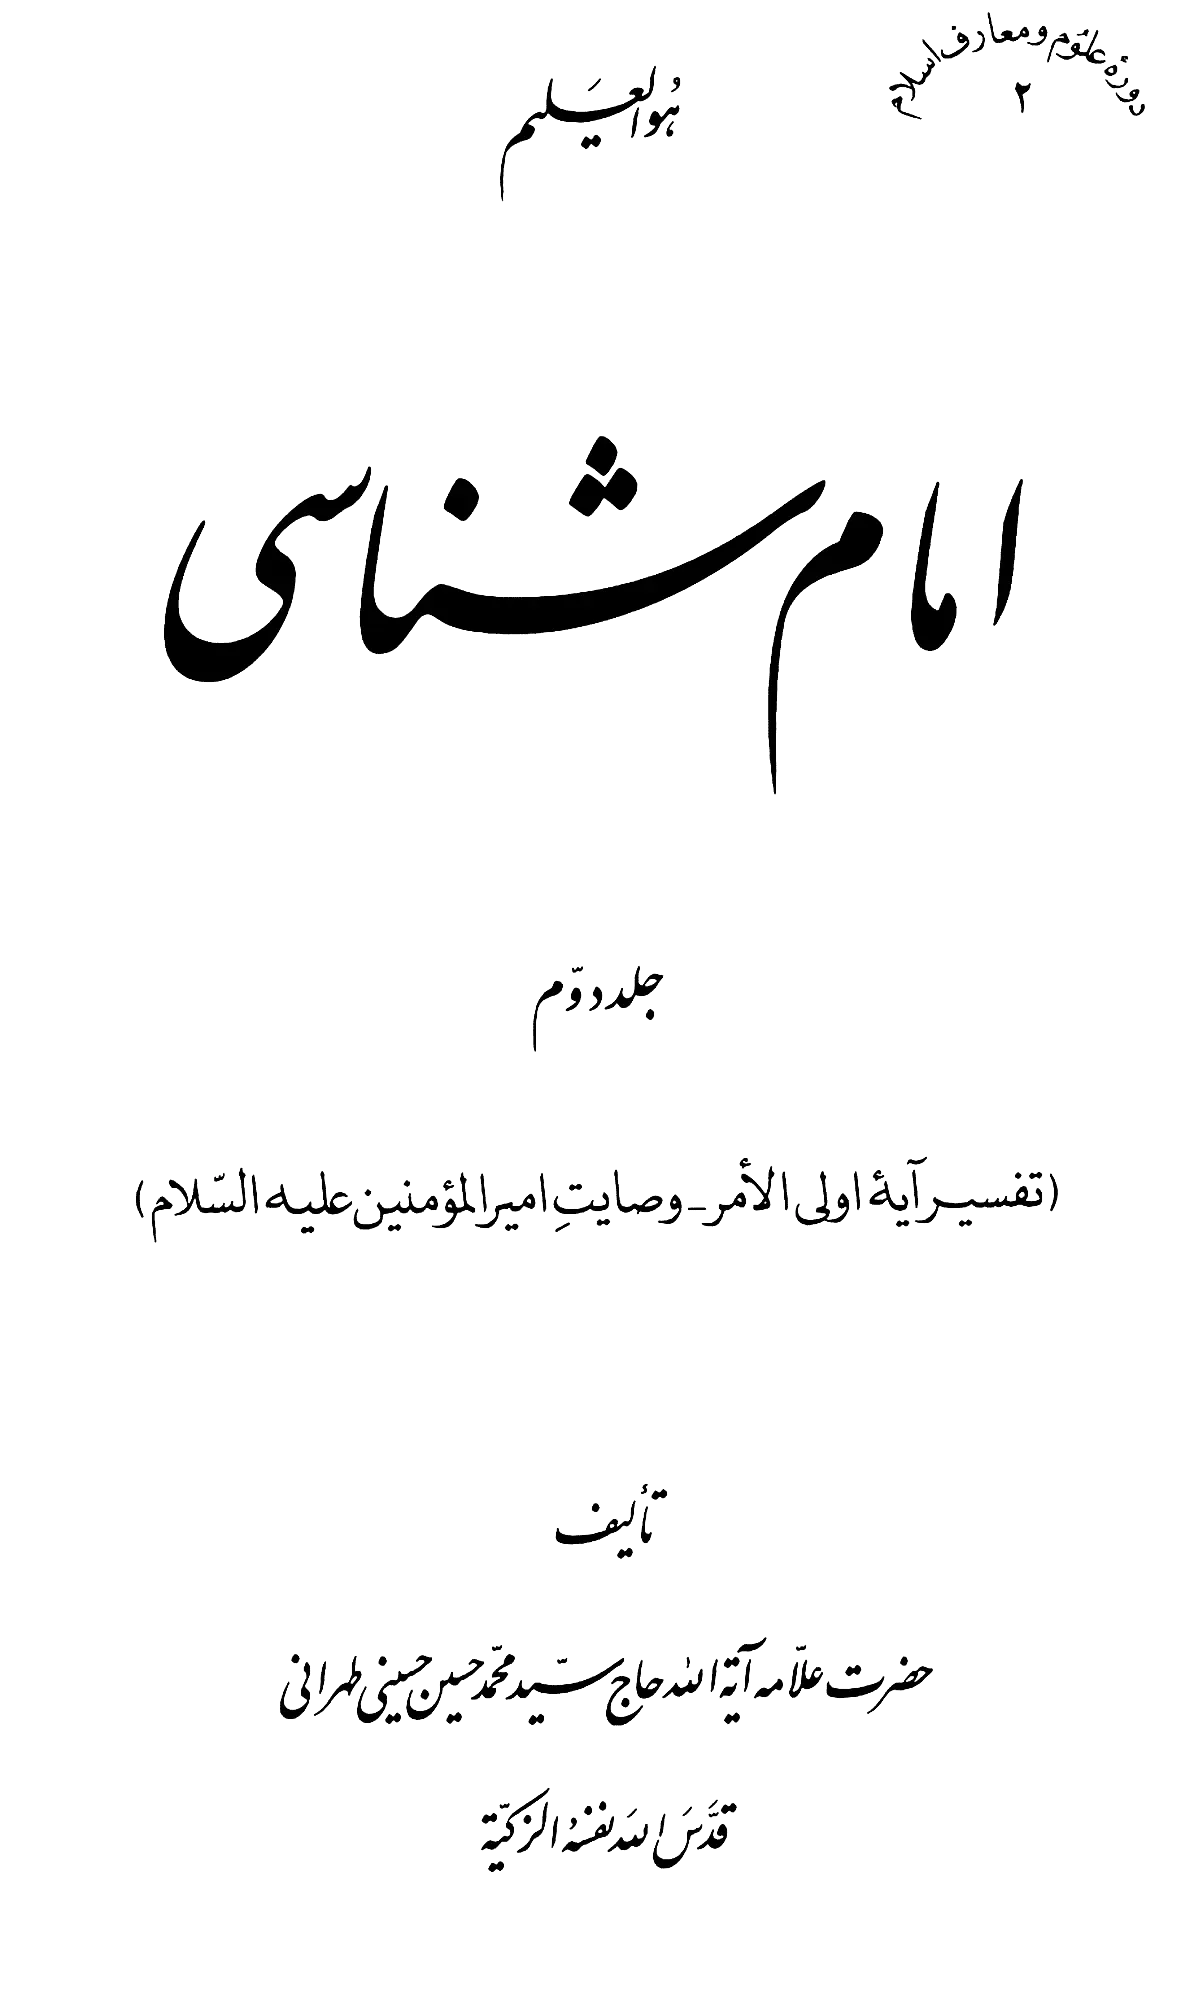 دورهٔ علوم و معارف اسلام
۲
هُوَ العَلیم
امام شناسی
جلد دوّم
(تفسیر آیهٔ اولی الأمر ـ وصایتِ امیرالمؤمنین علیه السّلام)
تألیف
حضرت علّامه آیة الله حاج سیّد محمّد حسین حسینی طهرانی
قدَّسَ اللهُ نفسَهُ الزکیّة